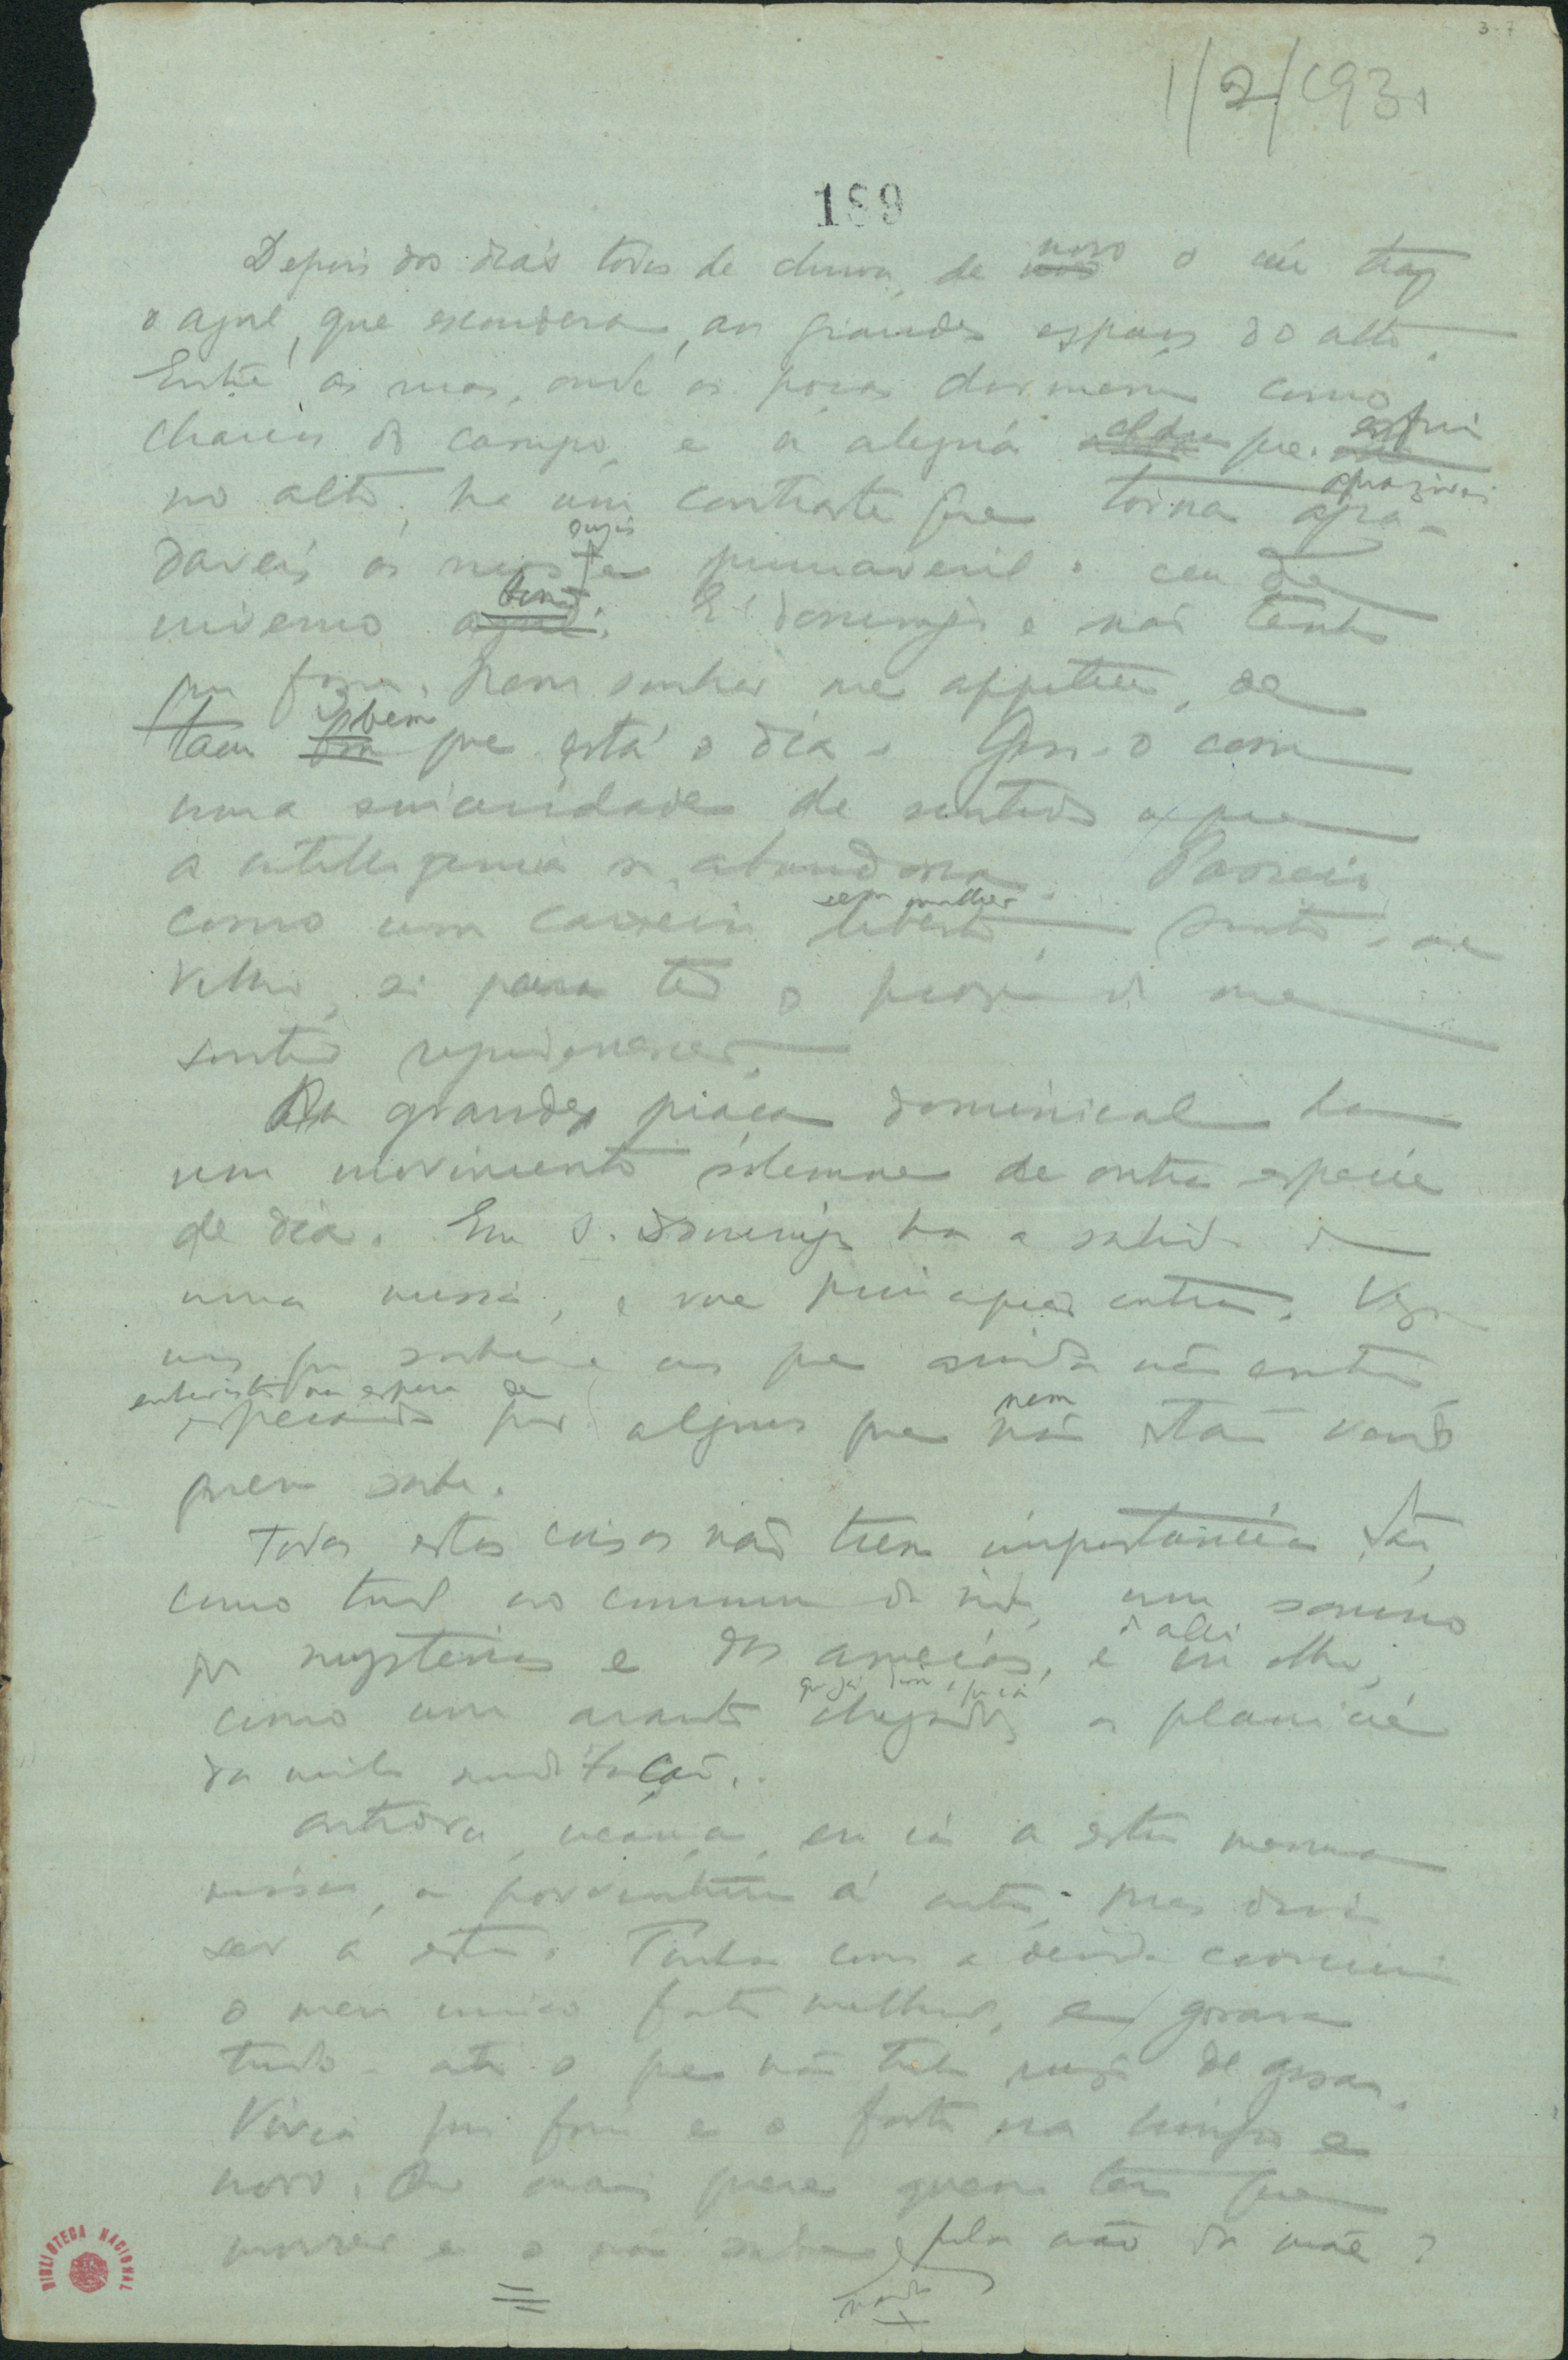 3-7
1/2/1931
189
Depois dos dias todos de chuva, de novo o céu traz
o azul, que escondera, aos grandes espaços do alto.
Entre as ruas, onde as poças dormem como
charcos do campo, e a alegria que esfria
no alto, ha um contraste que torna agra- apraziveis
daveis as ruas sujas e primaveril o ceu de
inverno baço. É domingo e não tenho
que fazer. Nem sonhar me appetece, de
tam bem que está o dia. Goso-o com
uma sinceridade de sentidos a que
a intelligencia se abandona. Passeio
como um caixeiro liberto sem mulher. Sinto-me
velho, só para ter o prazer de me
sentir rejuvenescer.
Na grande praça dominical ha
um movimento solemne de outra especie
de dia. Em S. Domingos ha a sahida de
uma missa, e vae principiar outra. Vejo
uns que sahem e uns que ainda não entraram,
esperando por alguns que nem não estão vendo
quem sahe.
Todas estas coisas não teem importancia. São,
como tudo no commum da vida, um somno
dos mysterios e das ameias, e eu olho, d'alli
como um arauto chegado, a planicie
da minha meditação.
Outrora, creança, eu ia a esta mesma
missa, ou porventura á outra, mas devia
ser a esta. Punha com a devida consciencia
o meu unico fato melhor, e gosava
tudo - até o que não tinha razão de gosar.
Vivia por fóra e o fato era limpo e
novo. Que mais quere quem tem que
morrer e o não sabe pela mão da mãe?